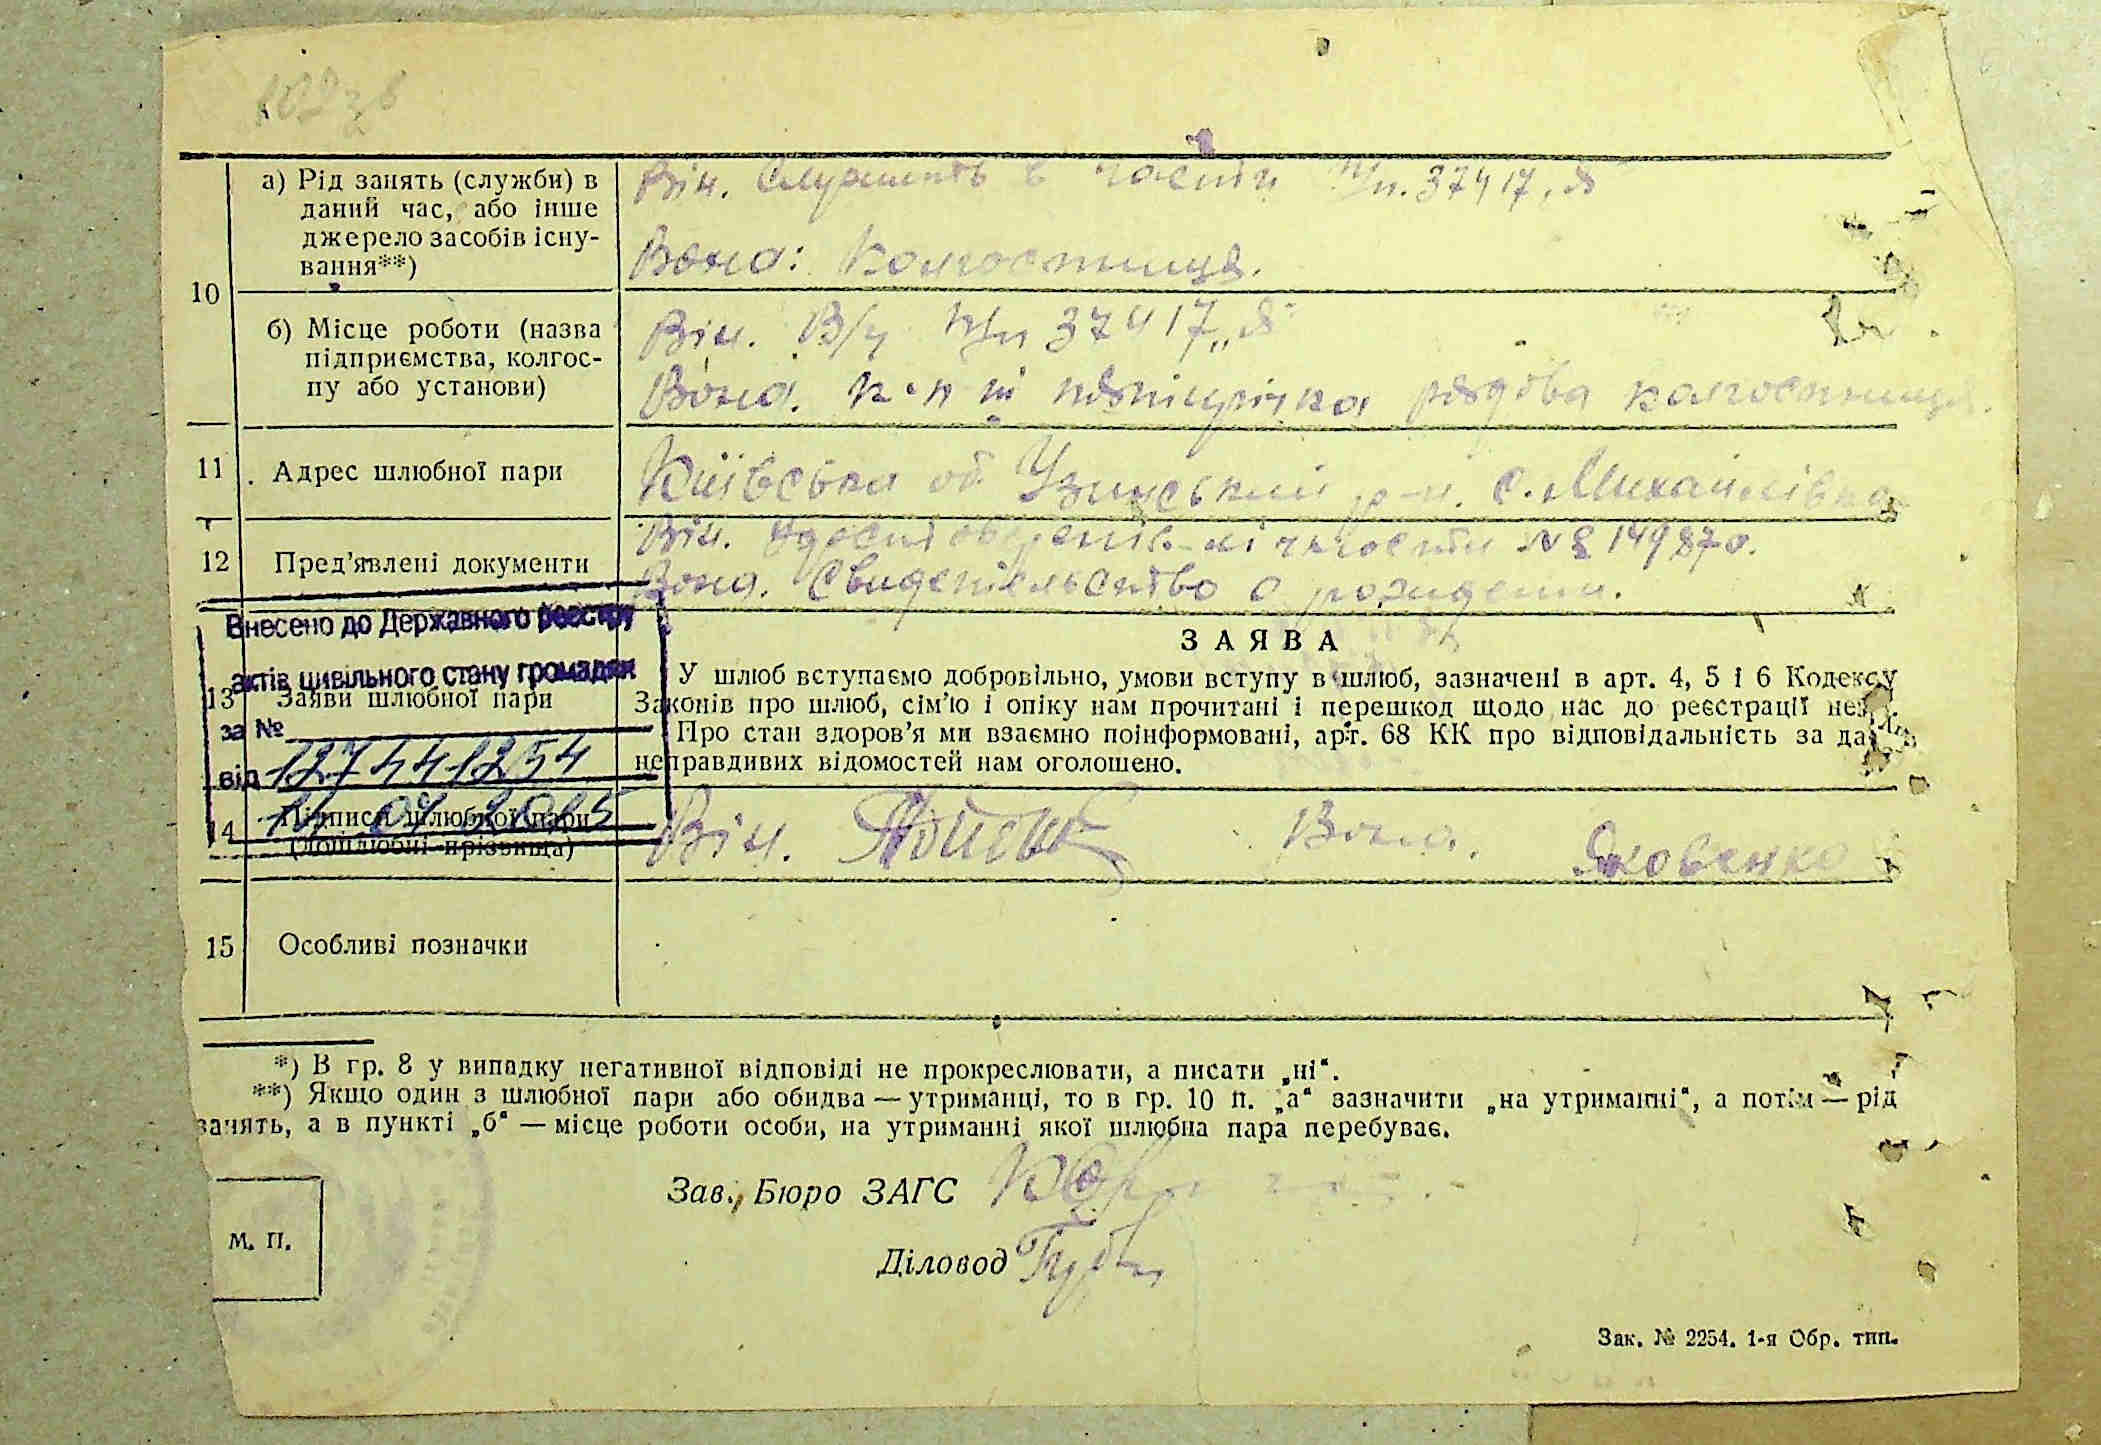 102 зв
10
а) Рід занять (служби) в
даний час, або інше
джерело засобів існу-
вання**)
Він. Служить в части п/п. 37417 „Я"
Вона: Колгоспниця.
б) Місце роботи (назва
підприємства, колгос-
пу або установи)
Він. В/ч п/п 37417 „Я"
Вона. к-п ІІІ пятирічка рядова колгоспниця.
11
Адрес шлюбної пари
Київська об. Узинський р-н. с. Михайлівка
12
Пред'явлені документи
Він. личности № 149870.
Вона. Свидетельство о рождении.
Внесено до Державного реєстру
актів цивільного стану громадян
за №
127441254
від
2015
13
Заяви шлюбної пари
ЗАЯВА
У шлюб вступаємо добровільно, умови вступу в шлюб, зазначені в арт. 4, 5 і 6 Кодексу
Законів про шлюб, сім'ю і опіку нам прочитані і перешкод щодо нас до реєстрації нема.
Про стан здоров'я ми взаємно поінформовані, арт. 68 КК про відповідальність за дачу
неправдивих відомостей нам оголошено.
14
Підписи шлюбної пари
(дошлюбні прізвища)
Він. Вона. Яковенко
15
Особливі позначки
*) В гр. 8 у випадку негативної відповіді не прокреслювати, а писати „ні".
**) Якщо один з шлюбної пари або обидва — утриманці, то в гр. 10 п. „а" зазначити „на утриманні", а потім — рід
занять, а в пункті „б" — місце роботи особи, на утриманні якої шлюбна пара перебуває.
Зав. Бюро ЗАГС
М. П.
Діловод
Зак. № 2254. 1-я Обр. тип.